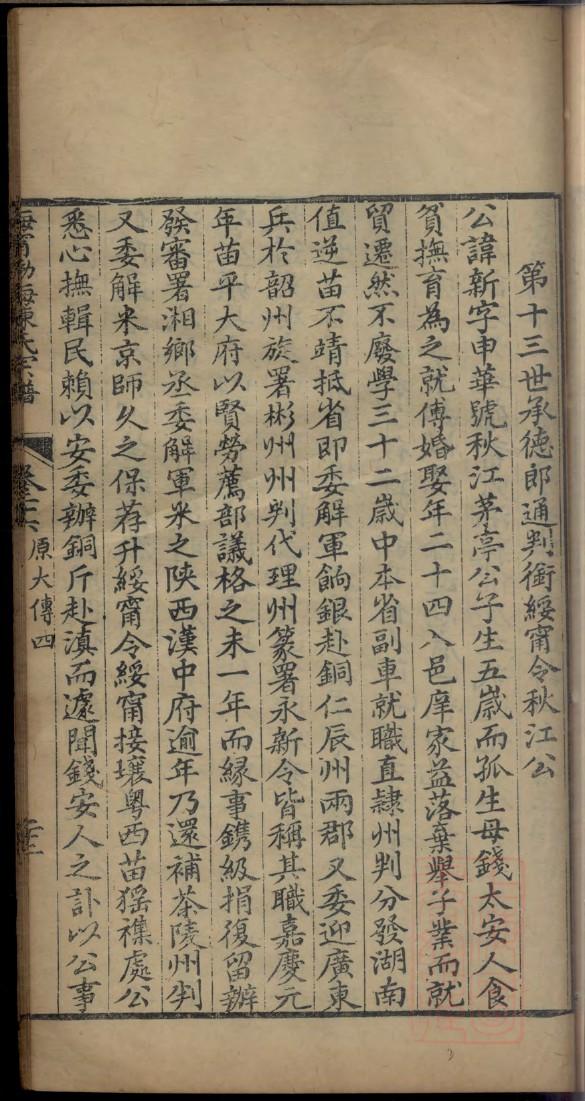 第十三世承德郎通判銜綏甯令秋江公
公諱新字申華號秋江茅亭公子生五歲而孤生母錢太安人食
貧撫育為之就傅婚娶年二十四入邑庠家益落棄舉子業而就
貿遷然不廢學三十二歲中本省副車就職直隸州判分發湖南
值逆苗不靖抵省即委解軍餉銀赴銅仁辰州兩郡又委迎廣東
兵於韶州旋署彬州州判代理州篆署永新令皆稱其職嘉慶元
年苗平大府以賢勞薦部議格之未一年而緣事鐫級捐復留辦
發審署湘鄉丞委解軍米之陝西漢中府逾年乃還補茶陵州判
又委解米京師久之保荐升綏甯令綏甯接壤粵西苗猺襍處公
悉心撫輯民賴以安委辦銅斤赴滇而遽聞錢安人之訃以公事
海甯渤海陳氏宗譜
原大傳四